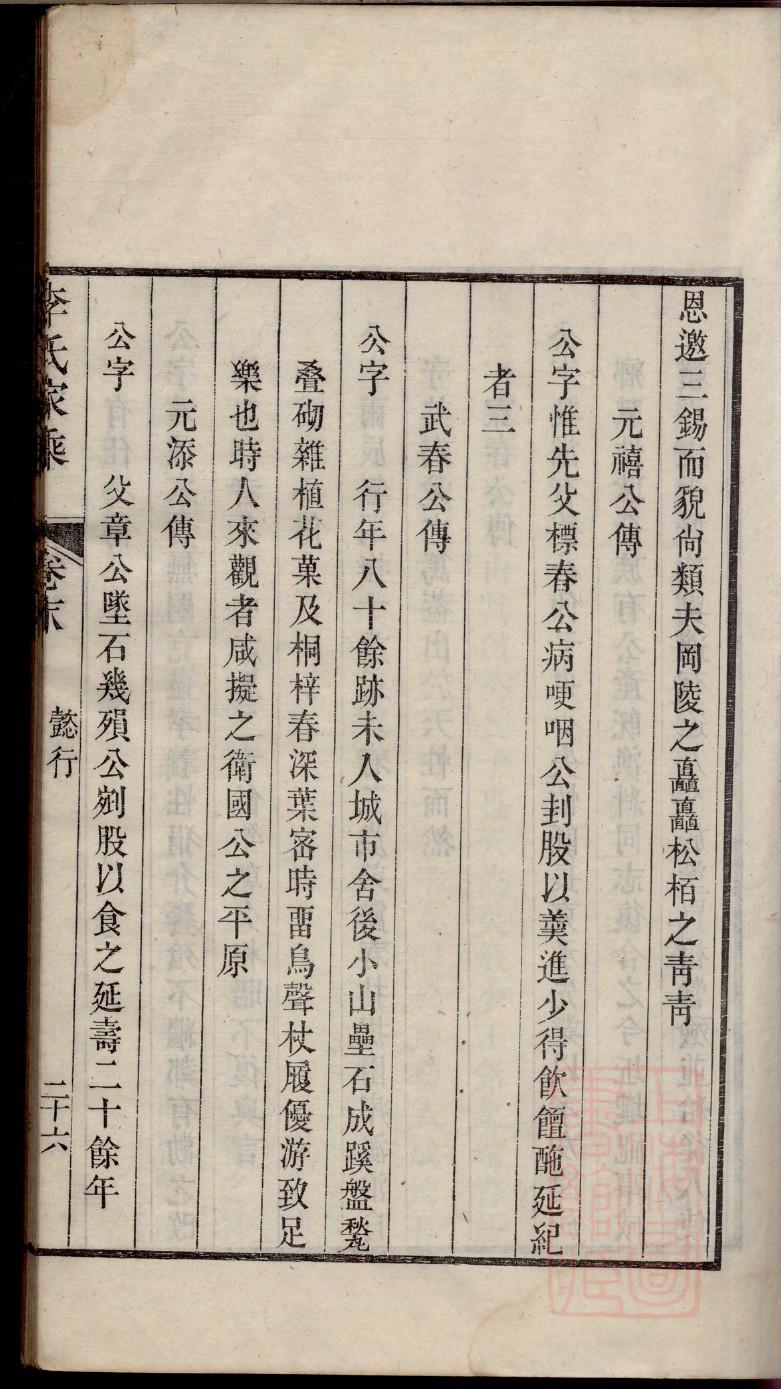 恩邀三錫而貌尙類夫岡陵之矗矗松栢之靑靑
元禧公傳
公字惟先父標春公病哽咽公刲股以羹進少得飲饘酏延紀
者三
武春公傳
公字　行年八十餘跡未入城市舍後小山壘石成蹊盤甃
叠砌雜植花菓及桐梓春深葉密時畱鳥聲杖履優游致足
樂也時人來觀者咸擬之衛國公之平原
元添公傳
公字　父章公墜石幾殞公剜股以食之延壽二十餘年
李氏家乘　卷末　懿行　二十六